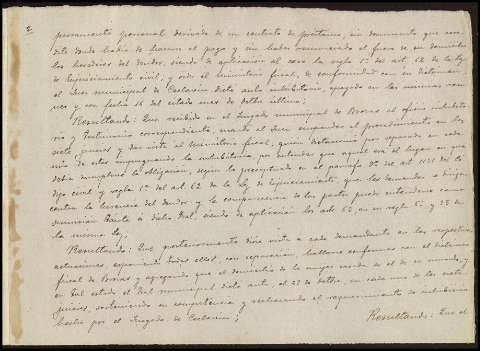 puramente personal derivada de un contrato de préstamo, sin documento que
dito donde había de hacerse el pago y sin haber renunciado el fuero de su domicilio
los herederos del deudor, siendo de aplicación al caso la regla 1ª del art. 62 de la ley
de Enjuiciamiento civil, y oido el ministerio fiscal, de conformidad con su dictamen,
el Juez municipal de dictó auto inhibitorio, apoyado en las mismas
y con fecha 16 del citado mes de
Resultando: Que recibido en el Juzgado municipal de Boveras el oficio inhibito
rio y testimonio correspondiente, mandó el Juez suspender el procedimiento en los
siete juicios y dar vista al Ministerio fiscal, quien dictaminó por separado en cada
uno de estos impugnando la inhibitoria, por entender que aquel era el lugar en que
debía cumplirse la obligación, según lo preceptuado en el párrafo 3º del art. 1171 del Có
digo civil y regla 1ª del art. 62 de la ley de Enjuiciamiento, que las demandas se dirigen
contra la herencia del deudor y la comparecencia de las partes puede entenderse como
sumisión tácita á dicho Juez, siendo de aplicación los art. 62, en su regla 5ª y 58 de
la misma ley.
Resultando: Que posteriormente dióse vista á cada demandante en las respectivas
actuaciones, exponiendo todos ellos, con separación, hallarse conformes con el dictamen
fiscal de y agregando que el domicilio de la mujer casada es el de su marido, y
en tal estado el Juez municipal dictó auto, el 27 de en cada uno de los siete
juicios, sosteniendo su competencia y rechazando el requerimiento de inhibición
hecho por el Juzgado de
Resultando: Que el